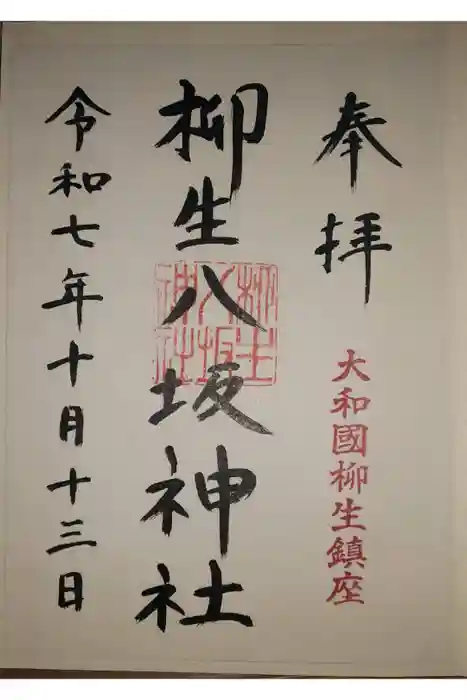 奉拝
大和國柳生鎮座
柳生八坂神社
柳生八坂神社
令和七年十月十三日